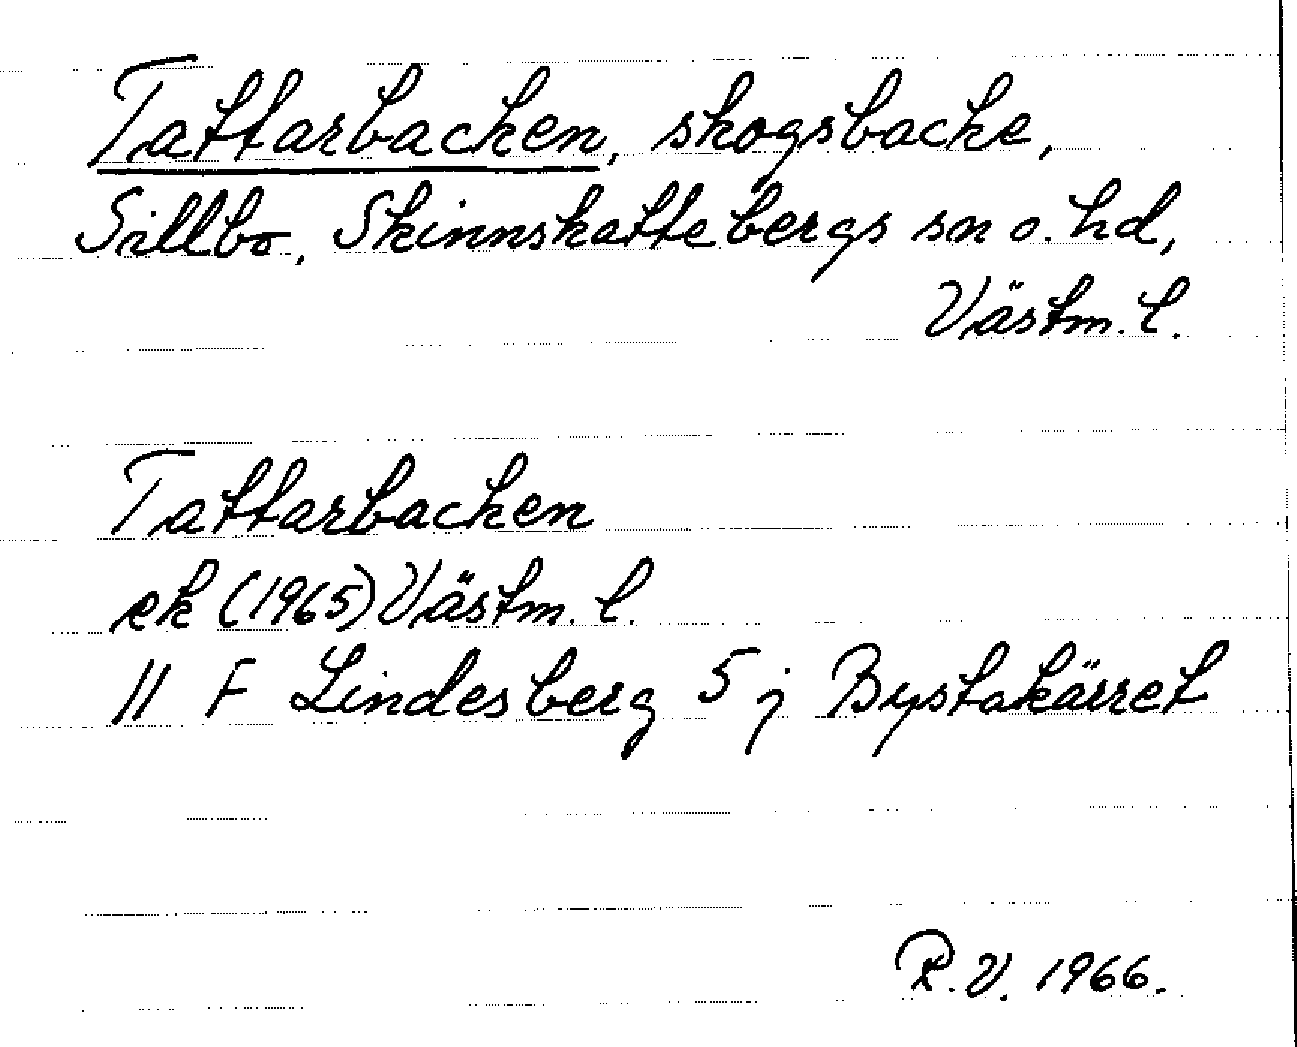 Tattarbacken, skogsbacke,
Sillbo, Skinnskattebergs sn o. hd,
Västm. l.
Tattarbacken
ek (1965) Västm. l.
11 F Lindesberg 5 j Bystakärret
R.V. 1966.